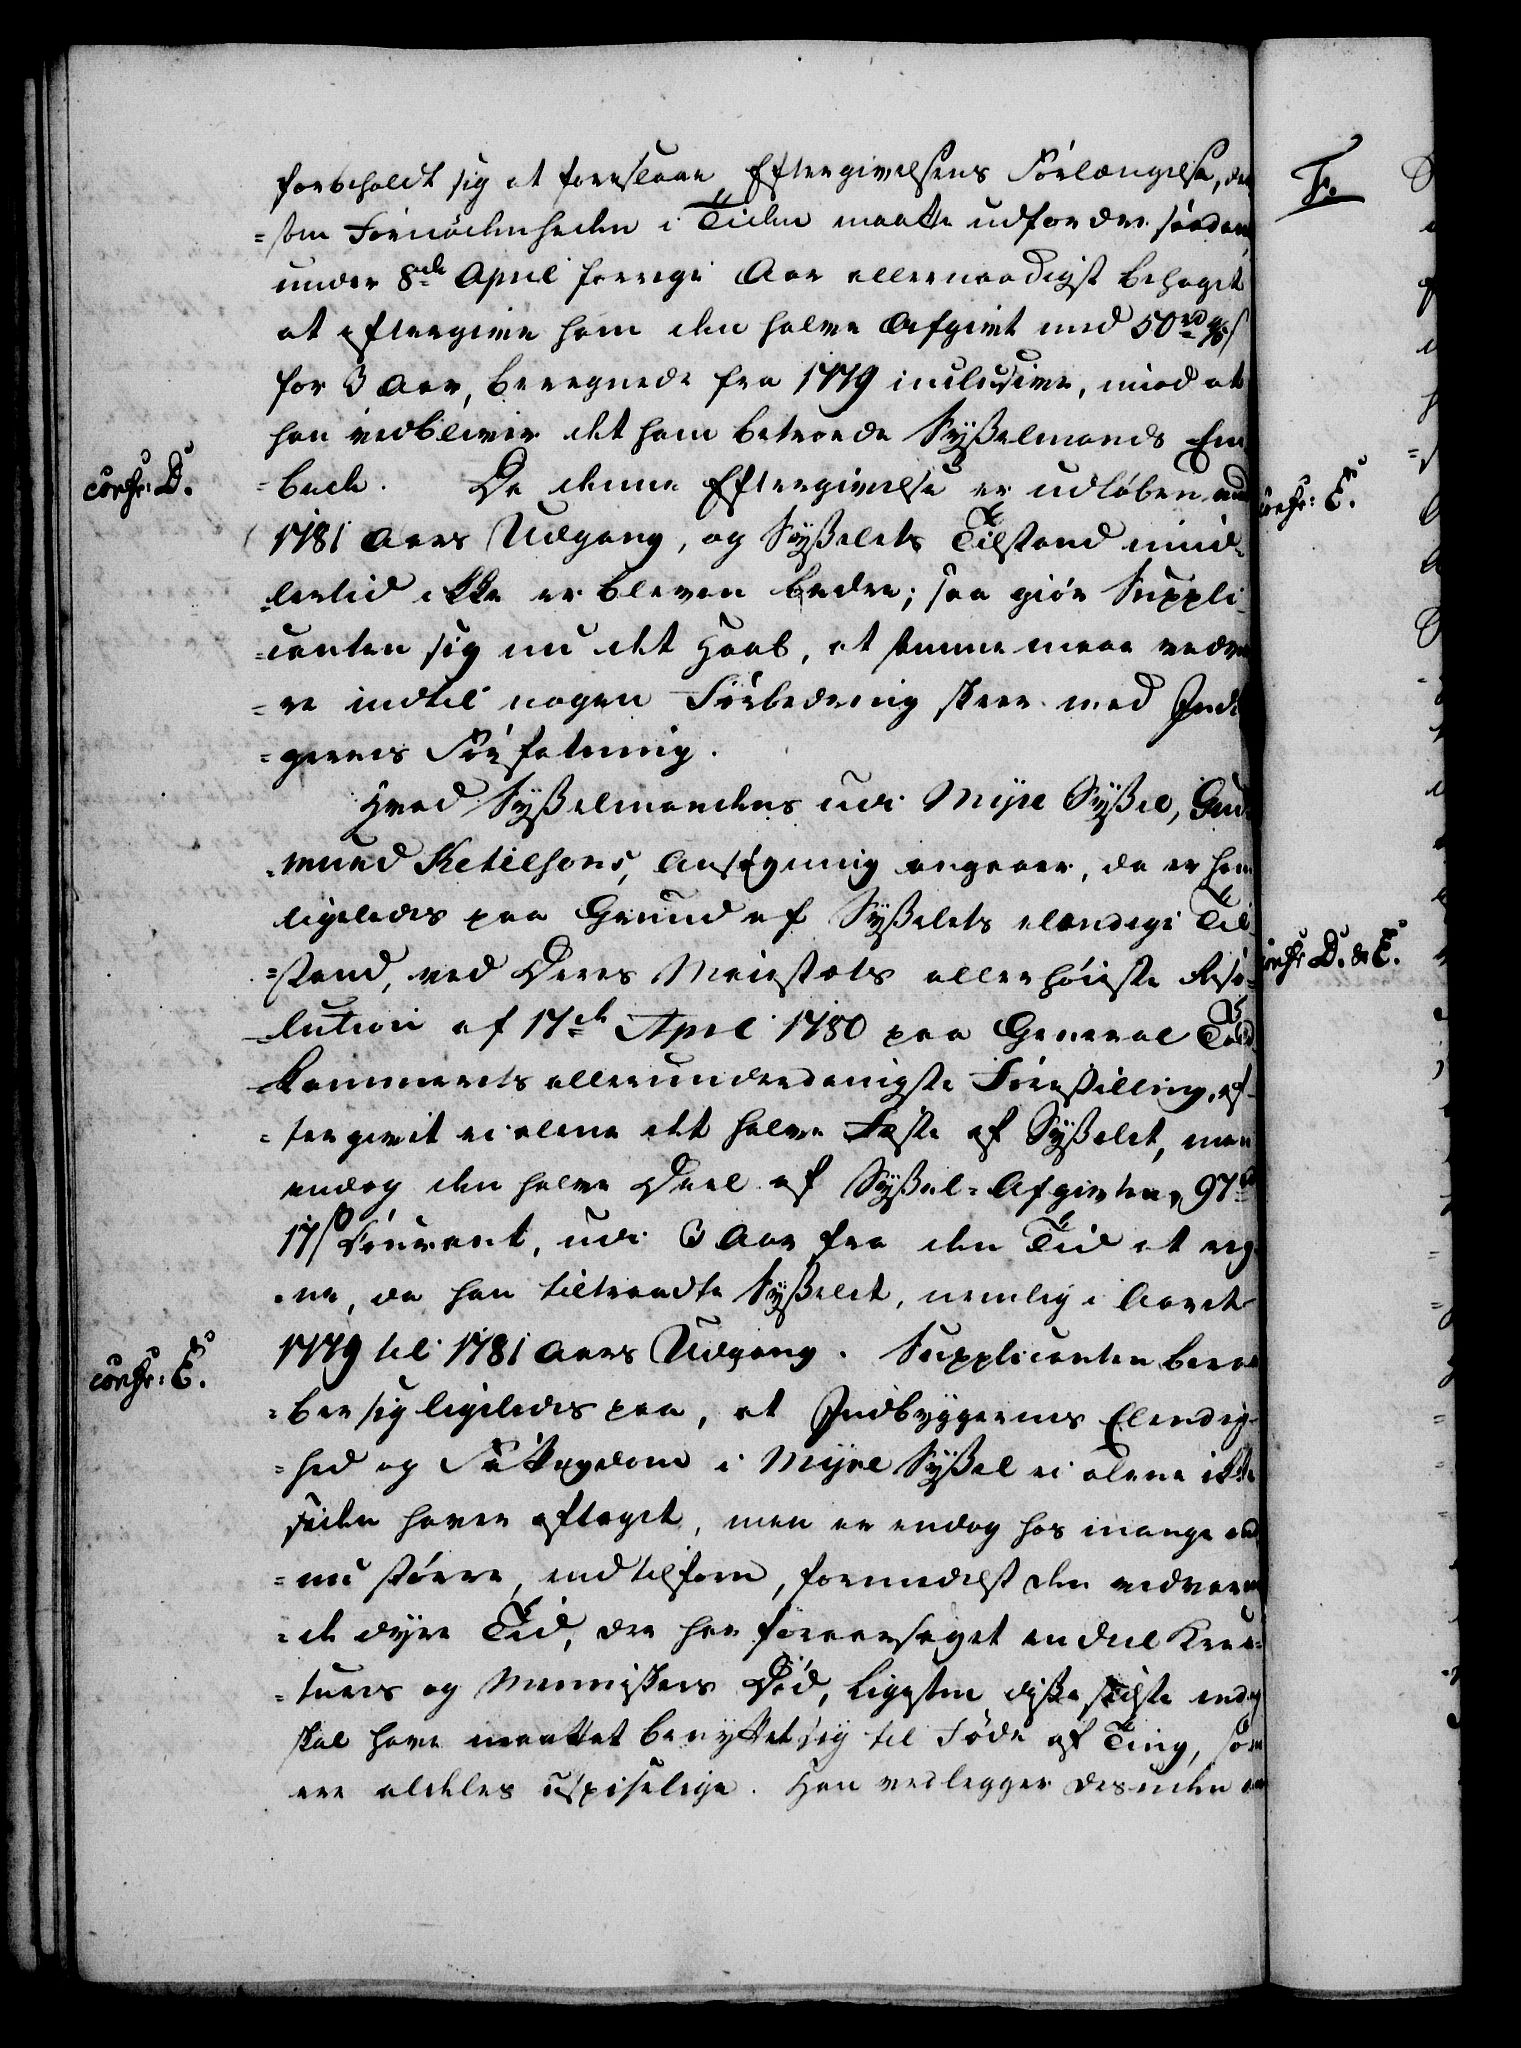 forbeholdt sig at foreslaae Eftergivelsens Forlængelse, der
=som Fornödenheden i Tiden maatte udfordre saadant,
under 8de April forrige Aar allernaadigst behaget
at eftergive ham den halve Afgivt med 50rd
for 3 Aar, beregnede fra 1779 inclusive, mod at
han vedbliver det ham betroede Sysselmands Em
=bede. Da denne Eftergivelse er udløben med
1781 Aars Udgang, og Sysselets Tilstand imid=
=lertid ikke er bleven bedre; saa giör Suppli
=canten sig nu det Haab, at samme maae vedva
=re indtil nogen Forbedring skeer med Indb
=gernes Forfatning.
Hvad Sysselmandens udi Myre Syssel, Gud
=mund Ketilsons, Ansøgning angaaer, da er ham
ligeledes paa Grund af Sysselets elendige Til
=stand, ved Deres Majestæts allerhöieste Reso=
=lution af 17de April 1780 paa General Told
Kammerets allerunderdanigste Forestilling, ef=
=tergivet ei alene det halve Fæste af Sysselet, men
endog den halve Deel af Syssel-Afgivten, 97rd
17s Courant, udi 3 Aar fra den Tid at reg
=ne, da han tiltraadte Sysselet, nemlig i Aaret
1779 til 1781 Aars Udgang. Supplicanten beraa
=ber sig ligeledes paa, at Indbyggernes Elendig
=hed og Fattigdom i Myre Syssel ei alene ikke
siden haver aftaget, men er endog hos mange end
=nu större, end tilforn, formedelst den vedvaren
=de dyre Tid, der har foraarsaget en deel Krea=
=turers og Menniskers Död, ligesom disse sidste endog
skal have maattet benyttet sig til Föde af Ting, som
ere aldeles uspiselige. Han vedlegger desuden en
confr: D.
confr: E.
F.
confr: E.
confr D. & E.